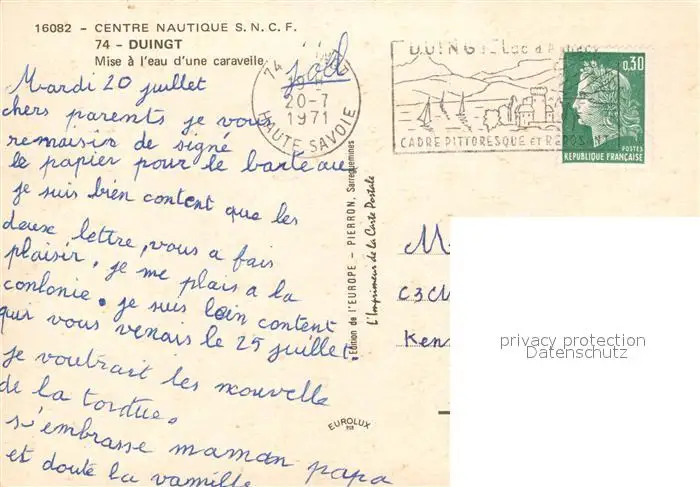 16082 - CENTRE NAUTIQUE S. N. C. F.
74 - DUINGT
Mise à l'eau d'une caravelle
joël
Mardi 20 juillet
chers parents je vous
remaisis de signé
le papier pour le barteau
je suis bien content que les
deux lettre, vous a fais
plaisir. je me plais a la
conlonie. je suis bien content
qui vous venais le 25 juillet.
je voutrait les nouvelle
de la tordue.
s'embrasse maman papa
et doute la vamille
74
20-7
1971
HAUTE SAVOIE
DUINGT Lac d'Annecy
CADRE PITTORESQUE et REPOSANT
0,30
POSTES
REPUBLIQUE FRANÇAISE
Edition de l'EUROPE - PIERRON, Sarreguemines
L'Imprimeur de la Carte Postale
EUROLUX
M
C3CM
Ken
privacy protection
Datenschutz